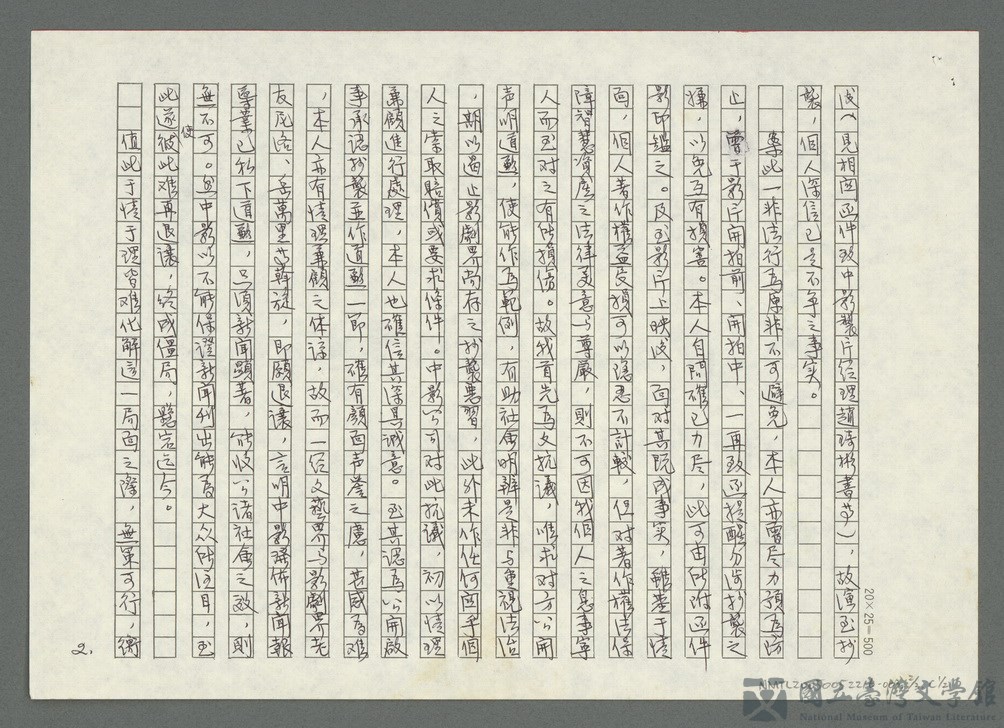 後（見相關函件致中影製片經理趙琦彬書等），故演至抄
襲，個人深信已是不爭之事实。
案此一非法行為原非不可避免，本人亦曾尽力預為防
止，曾于影片開拍前、開拍中、一再致函提醒勿涉抄襲之
嫌，以免互有損害。本人自問確已力尽，此可由所附函件
影印鑑之。及至影片上映後，面对其既成事实，雖基于情
面，個人著作權益受損可以隱忍不計較，但对著作權法保
障智慧資產之法律美意与尊嚴，則不可因我個人之息事寧
人而至对之有所損傷。故我首先為文抗議，唯求对方公開
声明道歉，使能作為範例，有助社會明辨是非与重視法治
，期以遏止影劇界尚存之抄襲惡習，此外未作任何関乎個
人之索取賠償或要求條件。中影公司对此抗議，初以情理
兼顧進行處理，本人也確信其深具誠意。至其認為公開啟
事承認抄襲並作道歉一節，確有顏面声譽之慮，苦感為難
，本人亦有情理兼顧之体諒，故而一經文藝界与影劇界老
友尼洛、岳萬里等斡旋，即願退讓，言明中影
學業已私下道歉，只須新聞顯著，能收公諸社會之效，則
無不可。無中影以不能保證新聞刊出能為大众所注目，至
此遂使彼此难再退讓，終成僵局，懸宕迄今。
值此于情于理皆难化解這一局面之際，無策可行，衡
2.
20×25=500
國立臺灣文學館
National Museum of Taiwan Literature